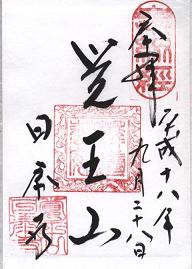 奉拝
平成十八年
九月二十八日
覚王山
日泰寺